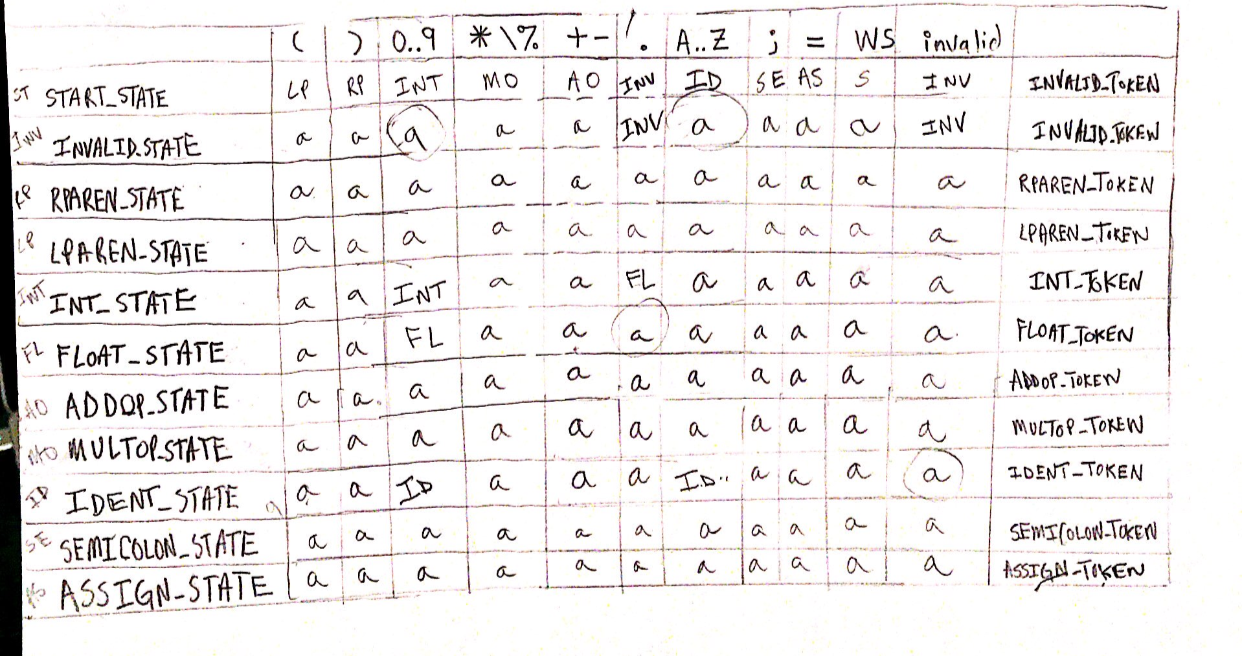 ( ) 0..9 *\% +- . A..Z ; = WS invalid
ST START_STATE LP RP INT MO AO INV ID SE AS S INV INVALID_TOKEN
INV INVALID_STATE a a a a a INV a a a a INV INVALID_TOKEN
RP RPAREN_STATE a a a a a a a a a a a RPAREN_TOKEN
LP LPAREN_STATE a a a a a a a a a a a LPAREN_TOKEN
INT INT_STATE a a INT a a FL a a a a a INT_TOKEN
FL FLOAT_STATE a a FL a a a a a a a a. FLOAT_TOKEN
AO ADDOP_STATE a a. a a a a a a a a a ADDOP_TOKEN
MO MULTOP_STATE a a a a a a a a a a a MULTOP_TOKEN
ID IDENT_STATE a a ID a a a ID.. a a a a IDENT_TOKEN
SE SEMICOLON_STATE a a a a a a a a a a a SEMICOLON_TOKEN
AS ASSIGN_STATE a a a a a a a a a a a ASSIGN_TOKEN